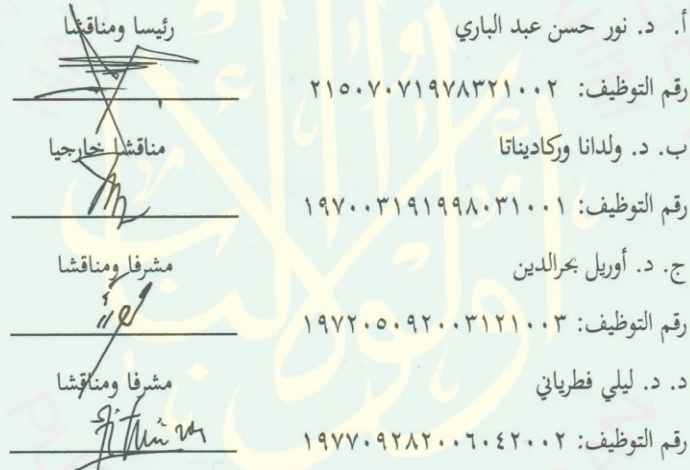 أ. د. نور حسن عبد الباري رئيسا ومناقشا
رقم التوظيف: ٢١٥٠٧٠٧١٩٧٨٣٢١٠٠٢
ب. د. ولدانا وركاديناتا مناقشا خارجيا
رقم التوظيف: ١٩٧٠٠٣١٩١٩٩٨٠٣١٠٠١
ج. د. أوريل بحرالدين مشرفا ومناقشا
رقم التوظيف: ١٩٧٢٠٥٠٩٢٠٠٣١٢١٠٠٣
د. د. ليلي فطرياني مشرفا ومناقشا
رقم التوظيف: ١٩٧٧٠٩٢٨٢٠٠٦٠٤٢٠٠٢